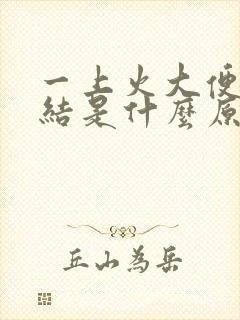 一上火大便
結是什麼原
丘山為岳